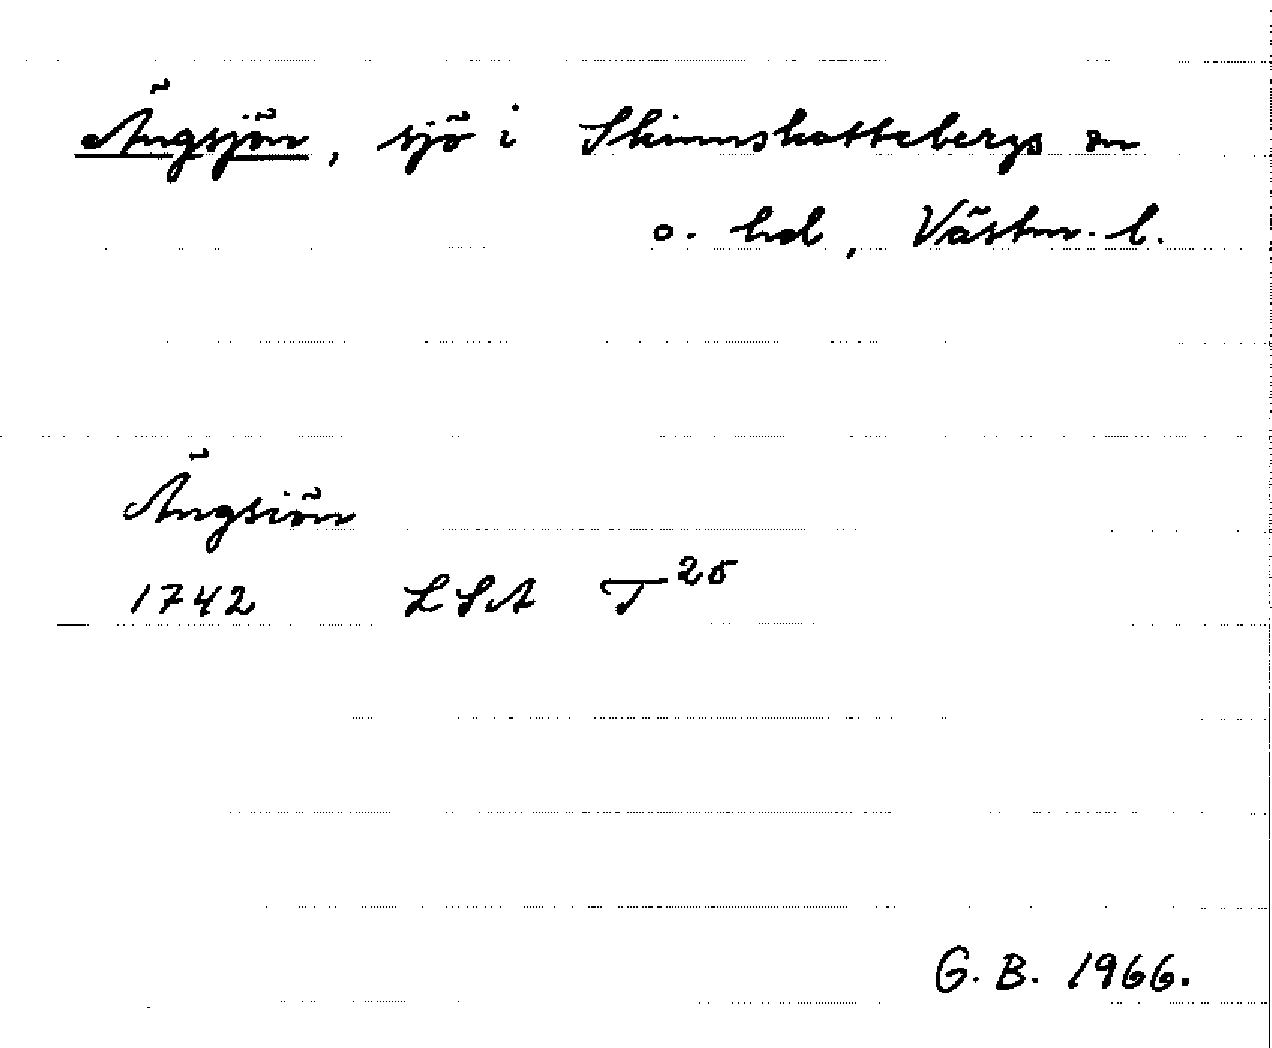 Ängsjön, sjö i Skinnskattebergs sn
o. hd, Västm. l.
Ängsiön
1742 LSA T 25
G. B. 1966.